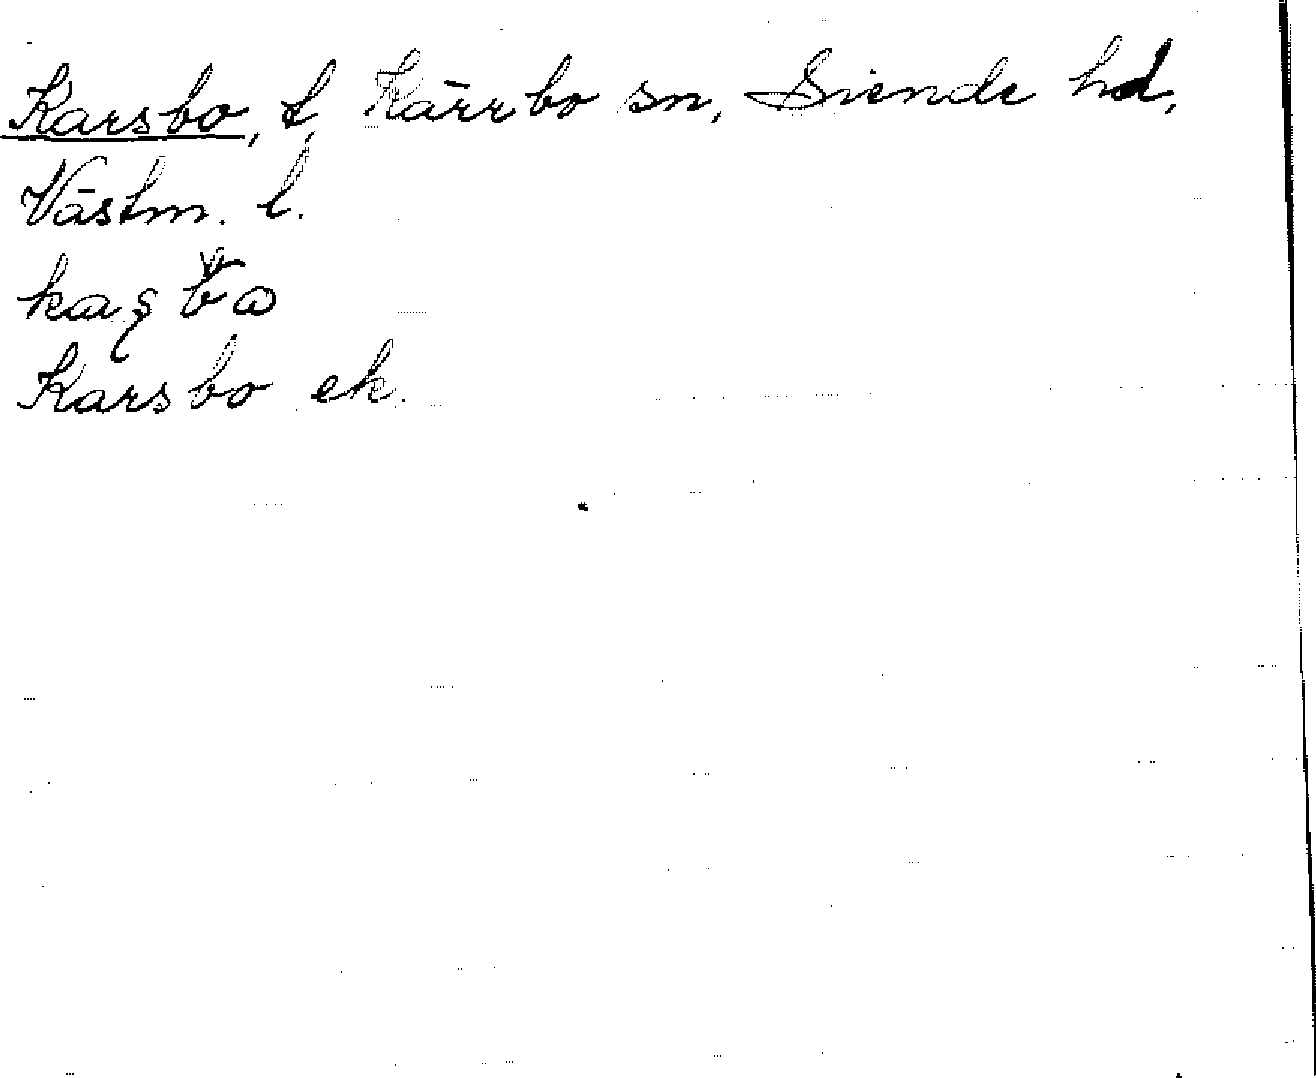 Karsbo, t, Kärrbo sn, Siende hd,
Västm. l.
Karsbo ek.